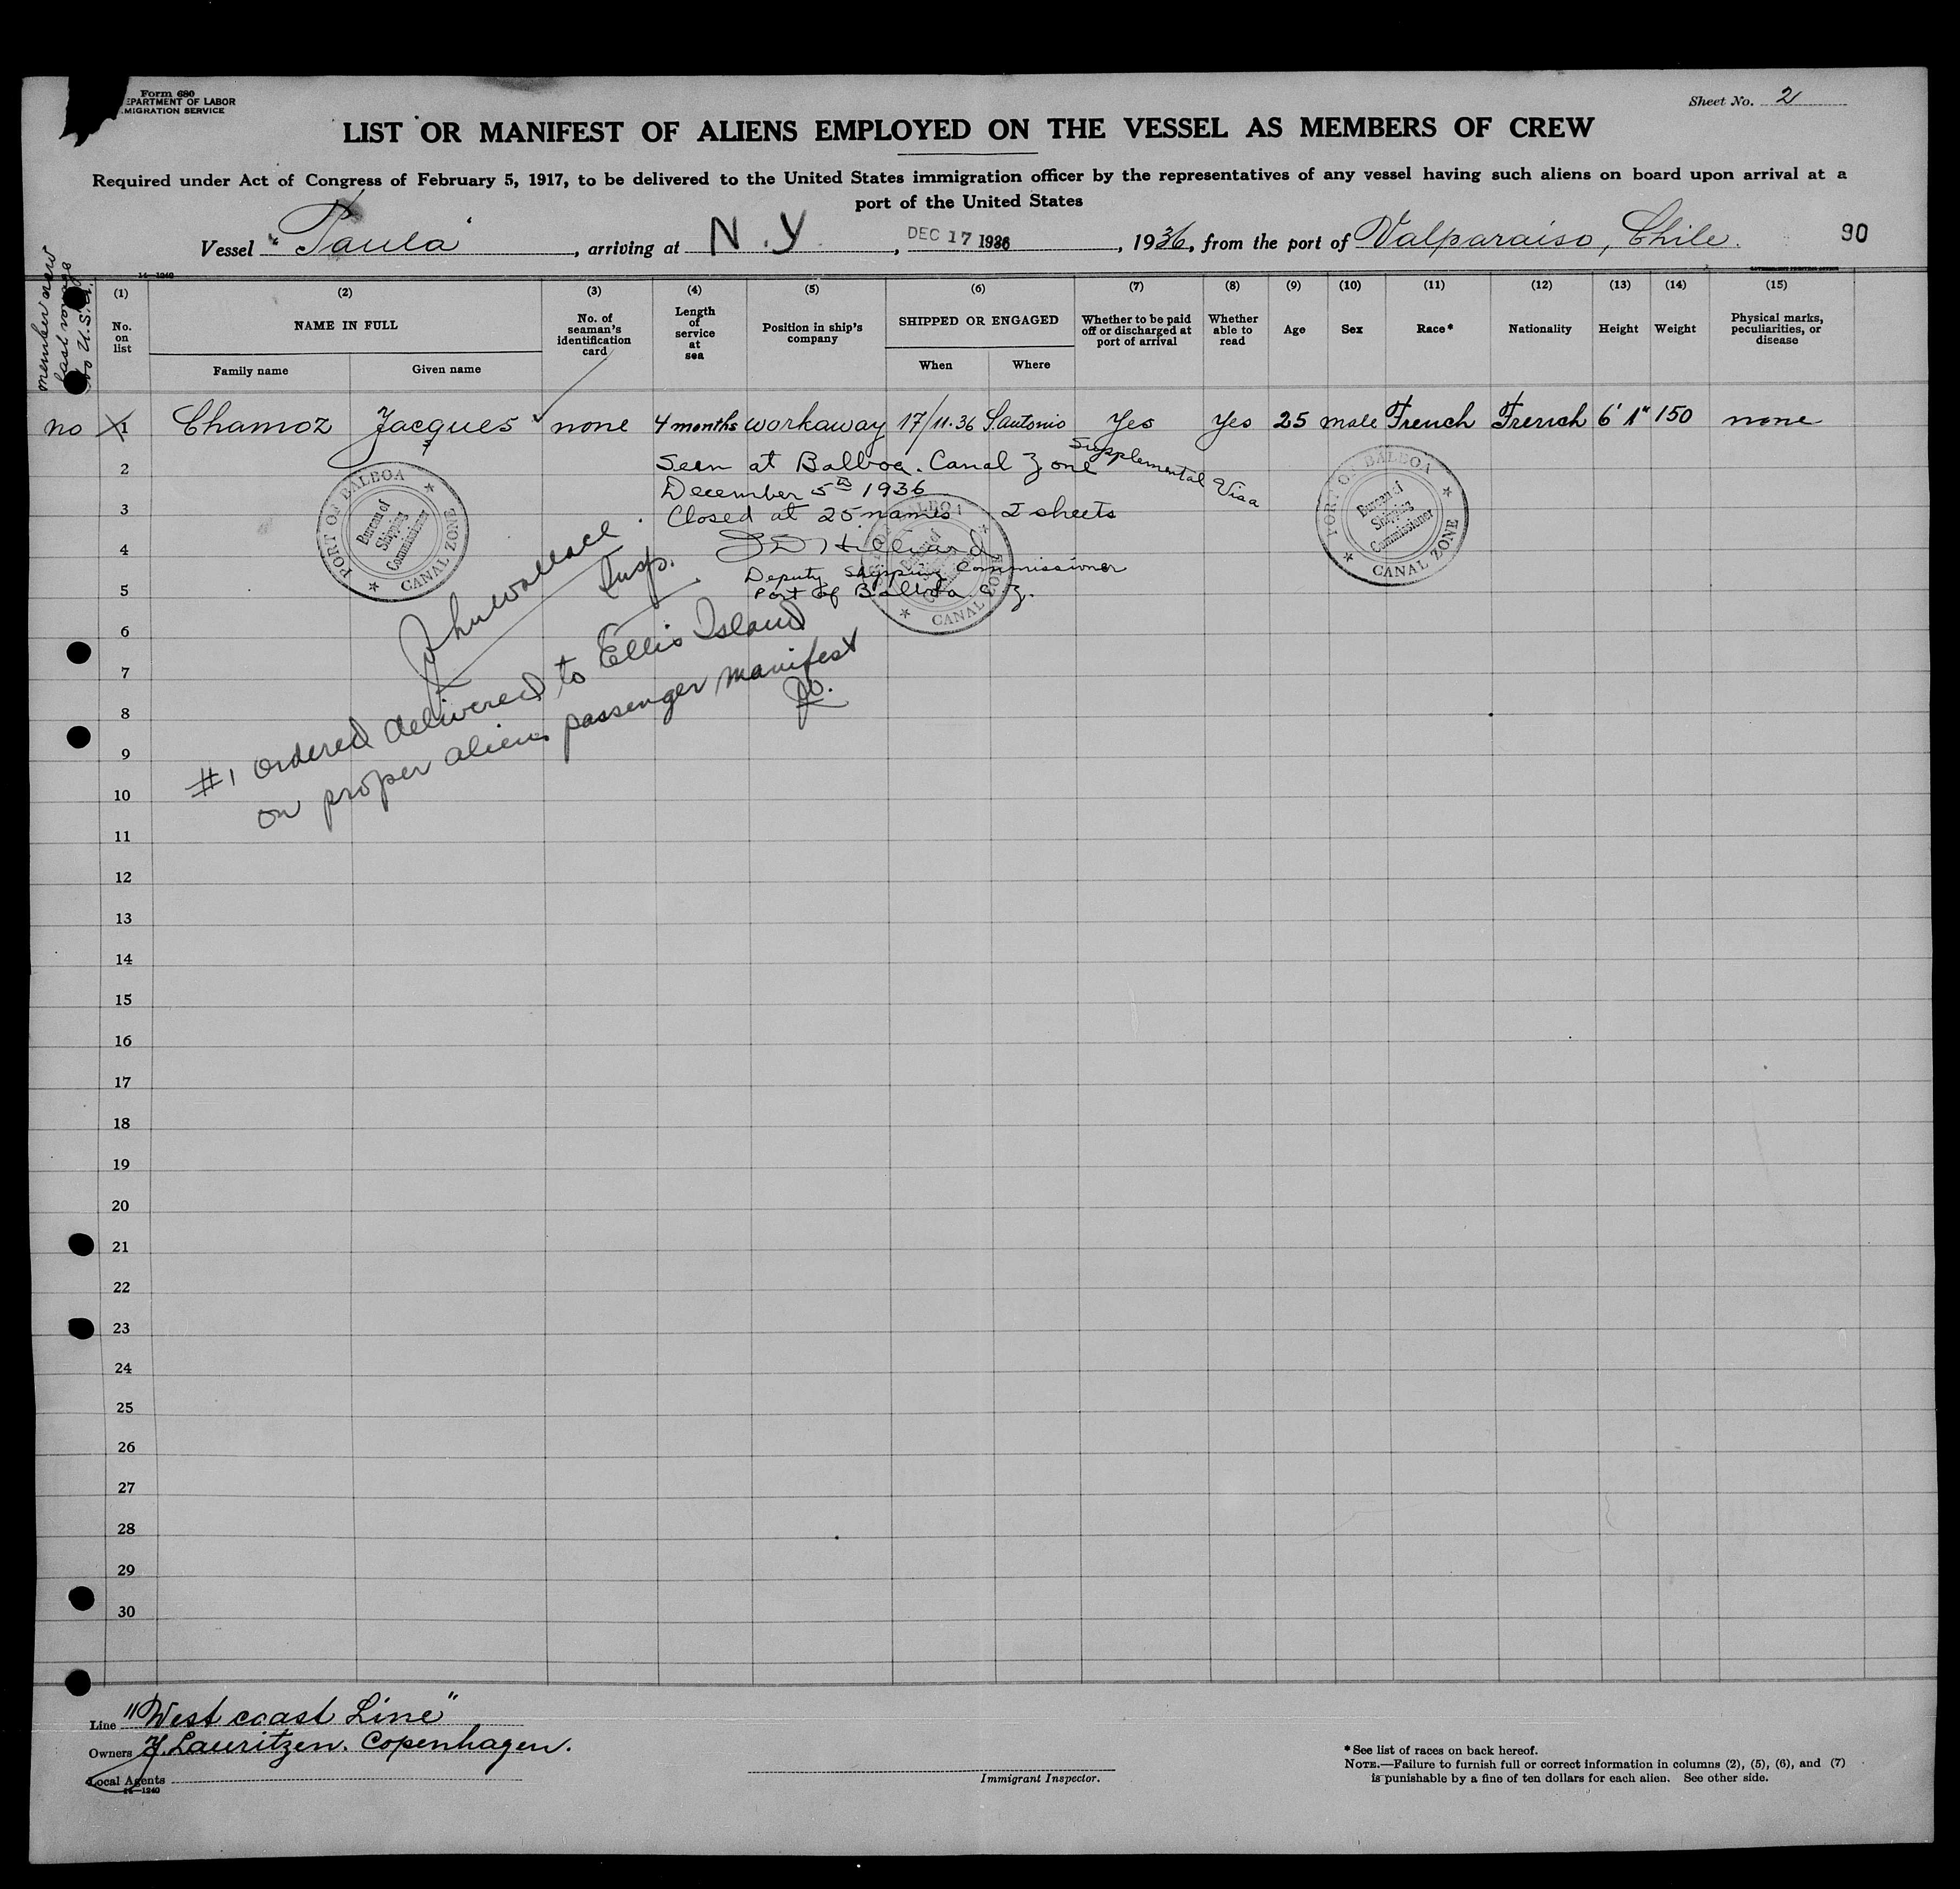 Form 680
EPARTMENT OF LABOR
MIGRATION SERVICE
Sheet No. 2
LIST OR MANIFEST OF ALIENS EMPLOYED ON THE VESSEL AS MEMBERS OF CREW
Required under Act of Congress of February 5, 1917, to be delivered to the United States immigration officer by the representatives of any vessel having such aliens on board upon arrival at a
port of the United States
Vessel "Paula", arriving at N.Y., DEC 17 1936, 1936, from the port of Valparaiso, Chile.
90
14—1240
member crew
last voyage
to U.S.A.
(1) (2) (3) (4) (5) (6) (7) (8) (9) (10) (11) (12) (13) (14) (15)
No. on list
NAME IN FULL
Family name
Given name
No. of seaman's identification card
Length of service at sea
Position in ship's company
SHIPPED OR ENGAGED
When
Where
Whether to be paid off or discharged at port of arrival
Whether able to read
Age
Sex
Race*
Nationality
Height
Weight
Physical marks, peculiarities, or disease
no 1 Chamoz Jacques none 4 months workaway 17/11.36 S.antonio Yes Yes 25 male French French 6' 1" 150 none
Supplemental Visa
2
Seen at Balboa. Canal Zone
December 5th 1936
3
Closed at 25 names 2 sheets
4
5
Deputy Shipping Commissioner
Port of Balboa C.Z.
PORT OF BALBOA
Bureau of
Shipping
Commissioner
CANAL ZONE
PORT OF BALBOA
Bureau of
Shipping
Commissioner
CANAL ZONE
BALBOA
CANAL ZONE
John Wallace
Insp.
#1 ordered delivered to Ellis Island
on proper alien passenger manifest
6
7
8
9
10
11
12
13
14
15
16
17
18
19
20
21
22
23
24
25
26
27
28
29
30
Line "West coast Line"
Owners J. Lauritzen. Copenhagen.
Local Agents
14—1240
Immigrant Inspector.
*See list of races on back hereof.
NOTE.—Failure to furnish full or correct information in columns (2), (5), (6), and (7)
is punishable by a fine of ten dollars for each alien. See other side.